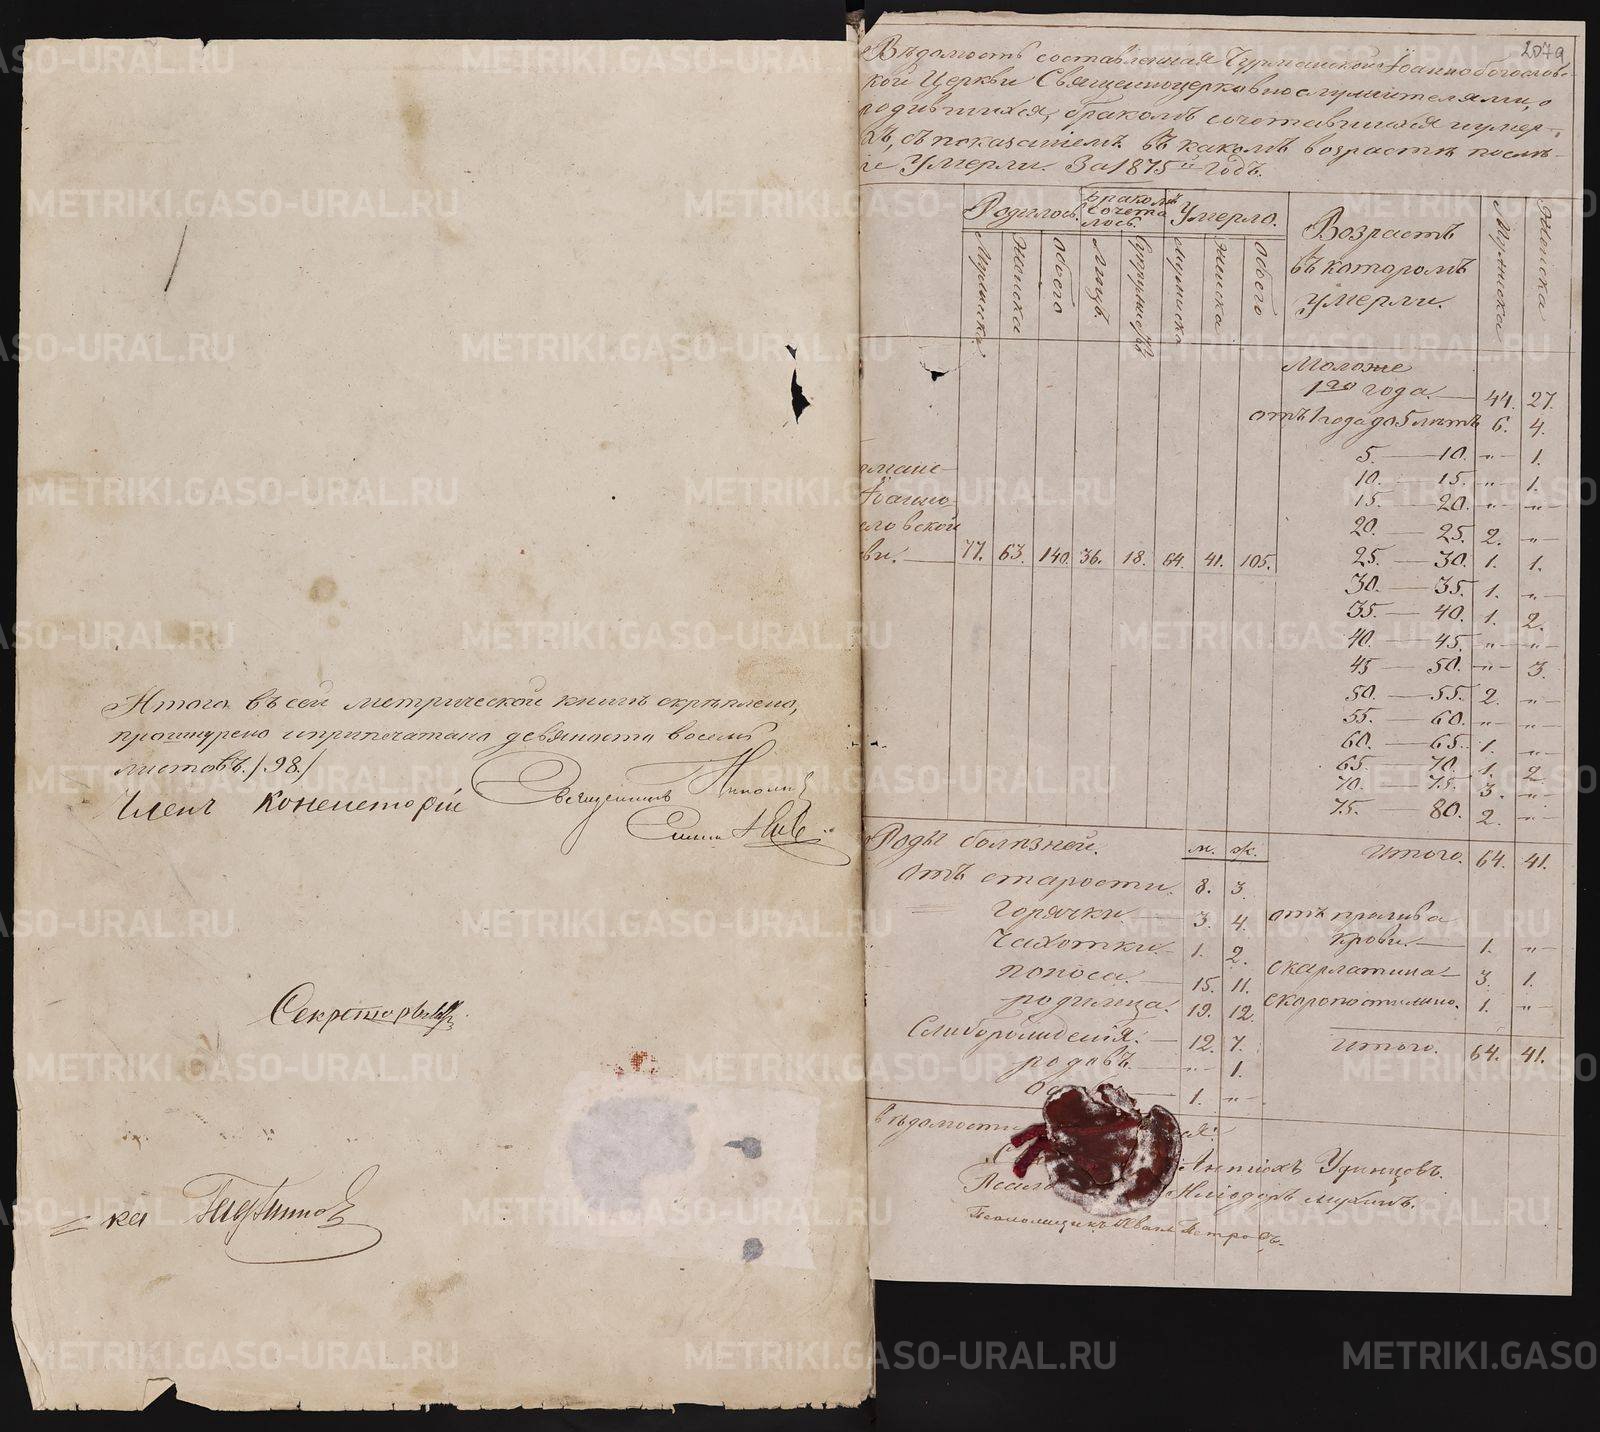 Итого въ сей метрической книгѣ скрѣплено,
прошнурено и припечатано девяносто восемь
листовъ. /98./
Членъ Консисторіи Священникъ Николай
Секретарь
ка
2079
Вѣдомость составленная Чурманской Іоанно богословс-
кой Церкви Священноцерковнослужителями, о
родившихся, бракомъ сочетавшихся и умер-
хъ, съ показаніемъ въ какомъ возрастѣ послѣ-
іе Умерли. За 1875й годъ.
Родилось. Бракомъ сочета лось. Умерло. Возрастъ въ которомъ умерли. Мужска Женска
Мужска. Женска Обоего Лицъ. Супружествъ Мужска Женска Обоего
Моложе
1го года. — 44. 27.
отъ 1 года до 5 лѣтъ 6. 4.
5. — 10. „ 1.
10. — 15. „ 1.
15. — 20. „ „
20. — 25. 2. „
25. — 30. 1. 1.
30. — 35. 1. „
35. — 40. 1. 2.
40. — 45. „ „
45 — 50. „ 3.
50. — 55. 2. „
55. — 60. „ „
60. — 65. 1. „
65. — 70. 1. 2.
70. — 75. 3. „
75. — 80. 2. „
Итого. 64. 41.
рманс-
Іоанно
словской
ви. — 77. 63. 140. 36. 18. 64. 41. 105.
Роды болѣзней. м. ж.
Отъ старости. 8. 3.
горячки. — 3. 4.
чахотки. 1. 2.
поноса. — 15. 11.
родимца. 19. 12.
Слаборожденія. — 12. 7.
родовъ. — „ 1.
1. „
отъ прилива
крови. — 1. „
скарлатина — 3. 1.
скоропостижно. 1. „
Итого. 64. 41.
вѣдомости
Антіохъ Удинцовъ.
Псало Иліодоръ Мухинъ.
Псаломщикъ Иванъ Петровъ.
METRIKI.GASO-URAL.RU